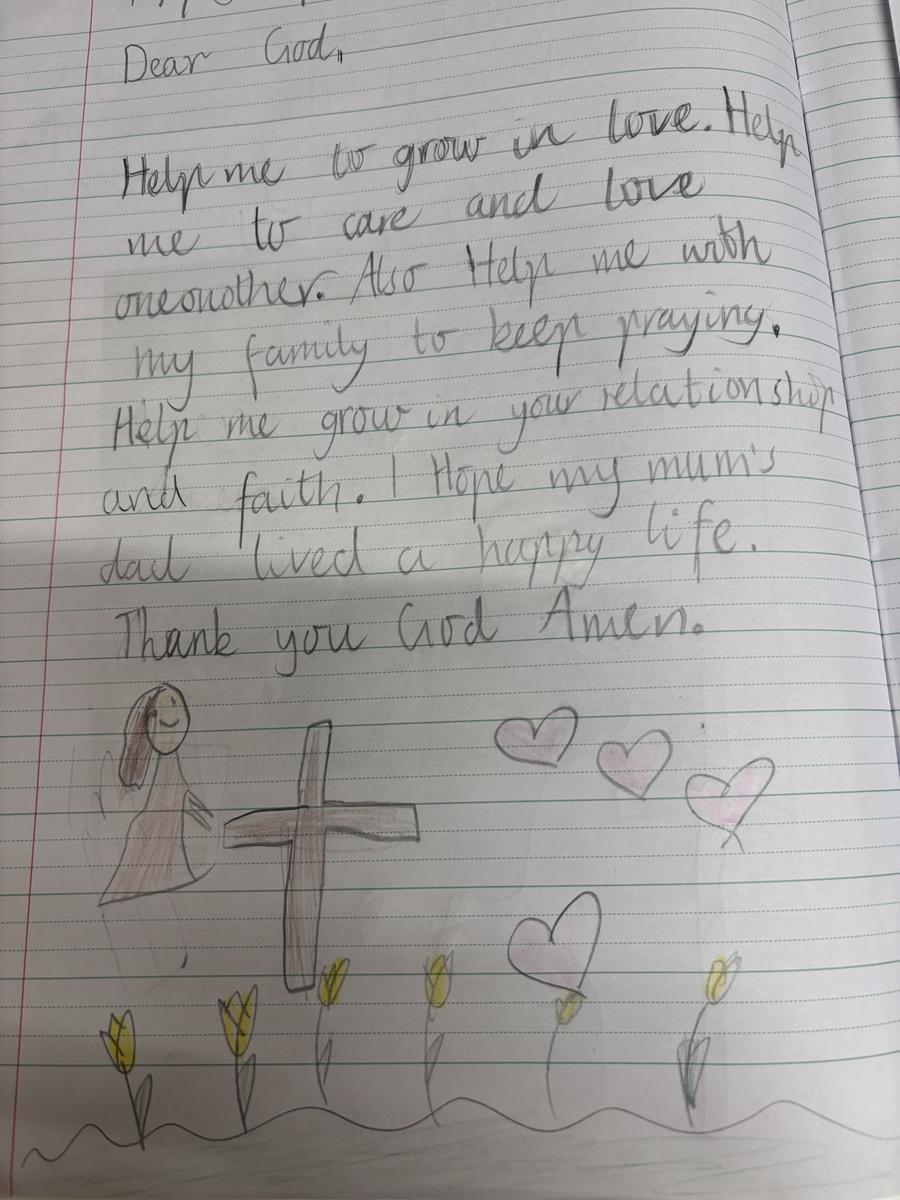 Dear God,,
Help me to grow in love. Help
me to care and love
oneonother. Also Help me with
my family to keep praying.
Help me grow in your relationship
and faith. I Hope my mum's
dad lived a happy life.
Thank you God Amen.